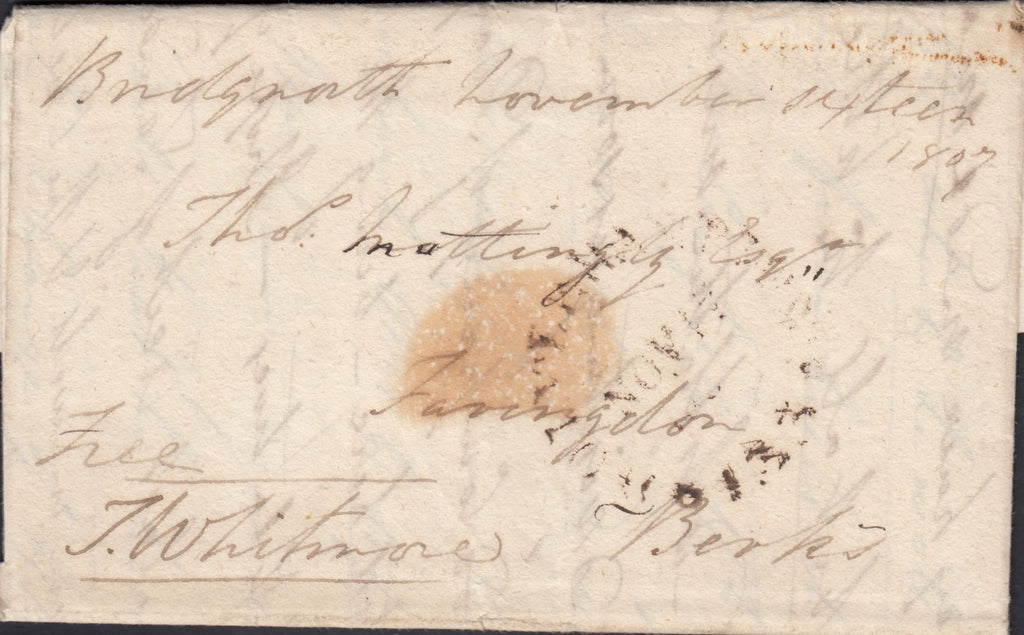 Bridgnorth November sixteen
1807
Thos. Mattingly Esqr
Faringdon
Free
Berks
T. Whitmore
NOV